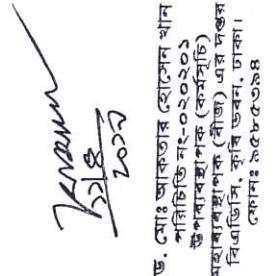 ১১/৪
২০১৯
ড. মোঃ আকতার হোসেন খান
পরিচিতি নং-০২০২০১
উপব্যবস্থাপক (কর্মসূচি)
মহাব্যবস্থাপক (বীজ) এর দপ্তর
বিএডিসি, কৃষি ভবন, ঢাকা।
ফোনঃ ৯৫৮৫৩৯৪